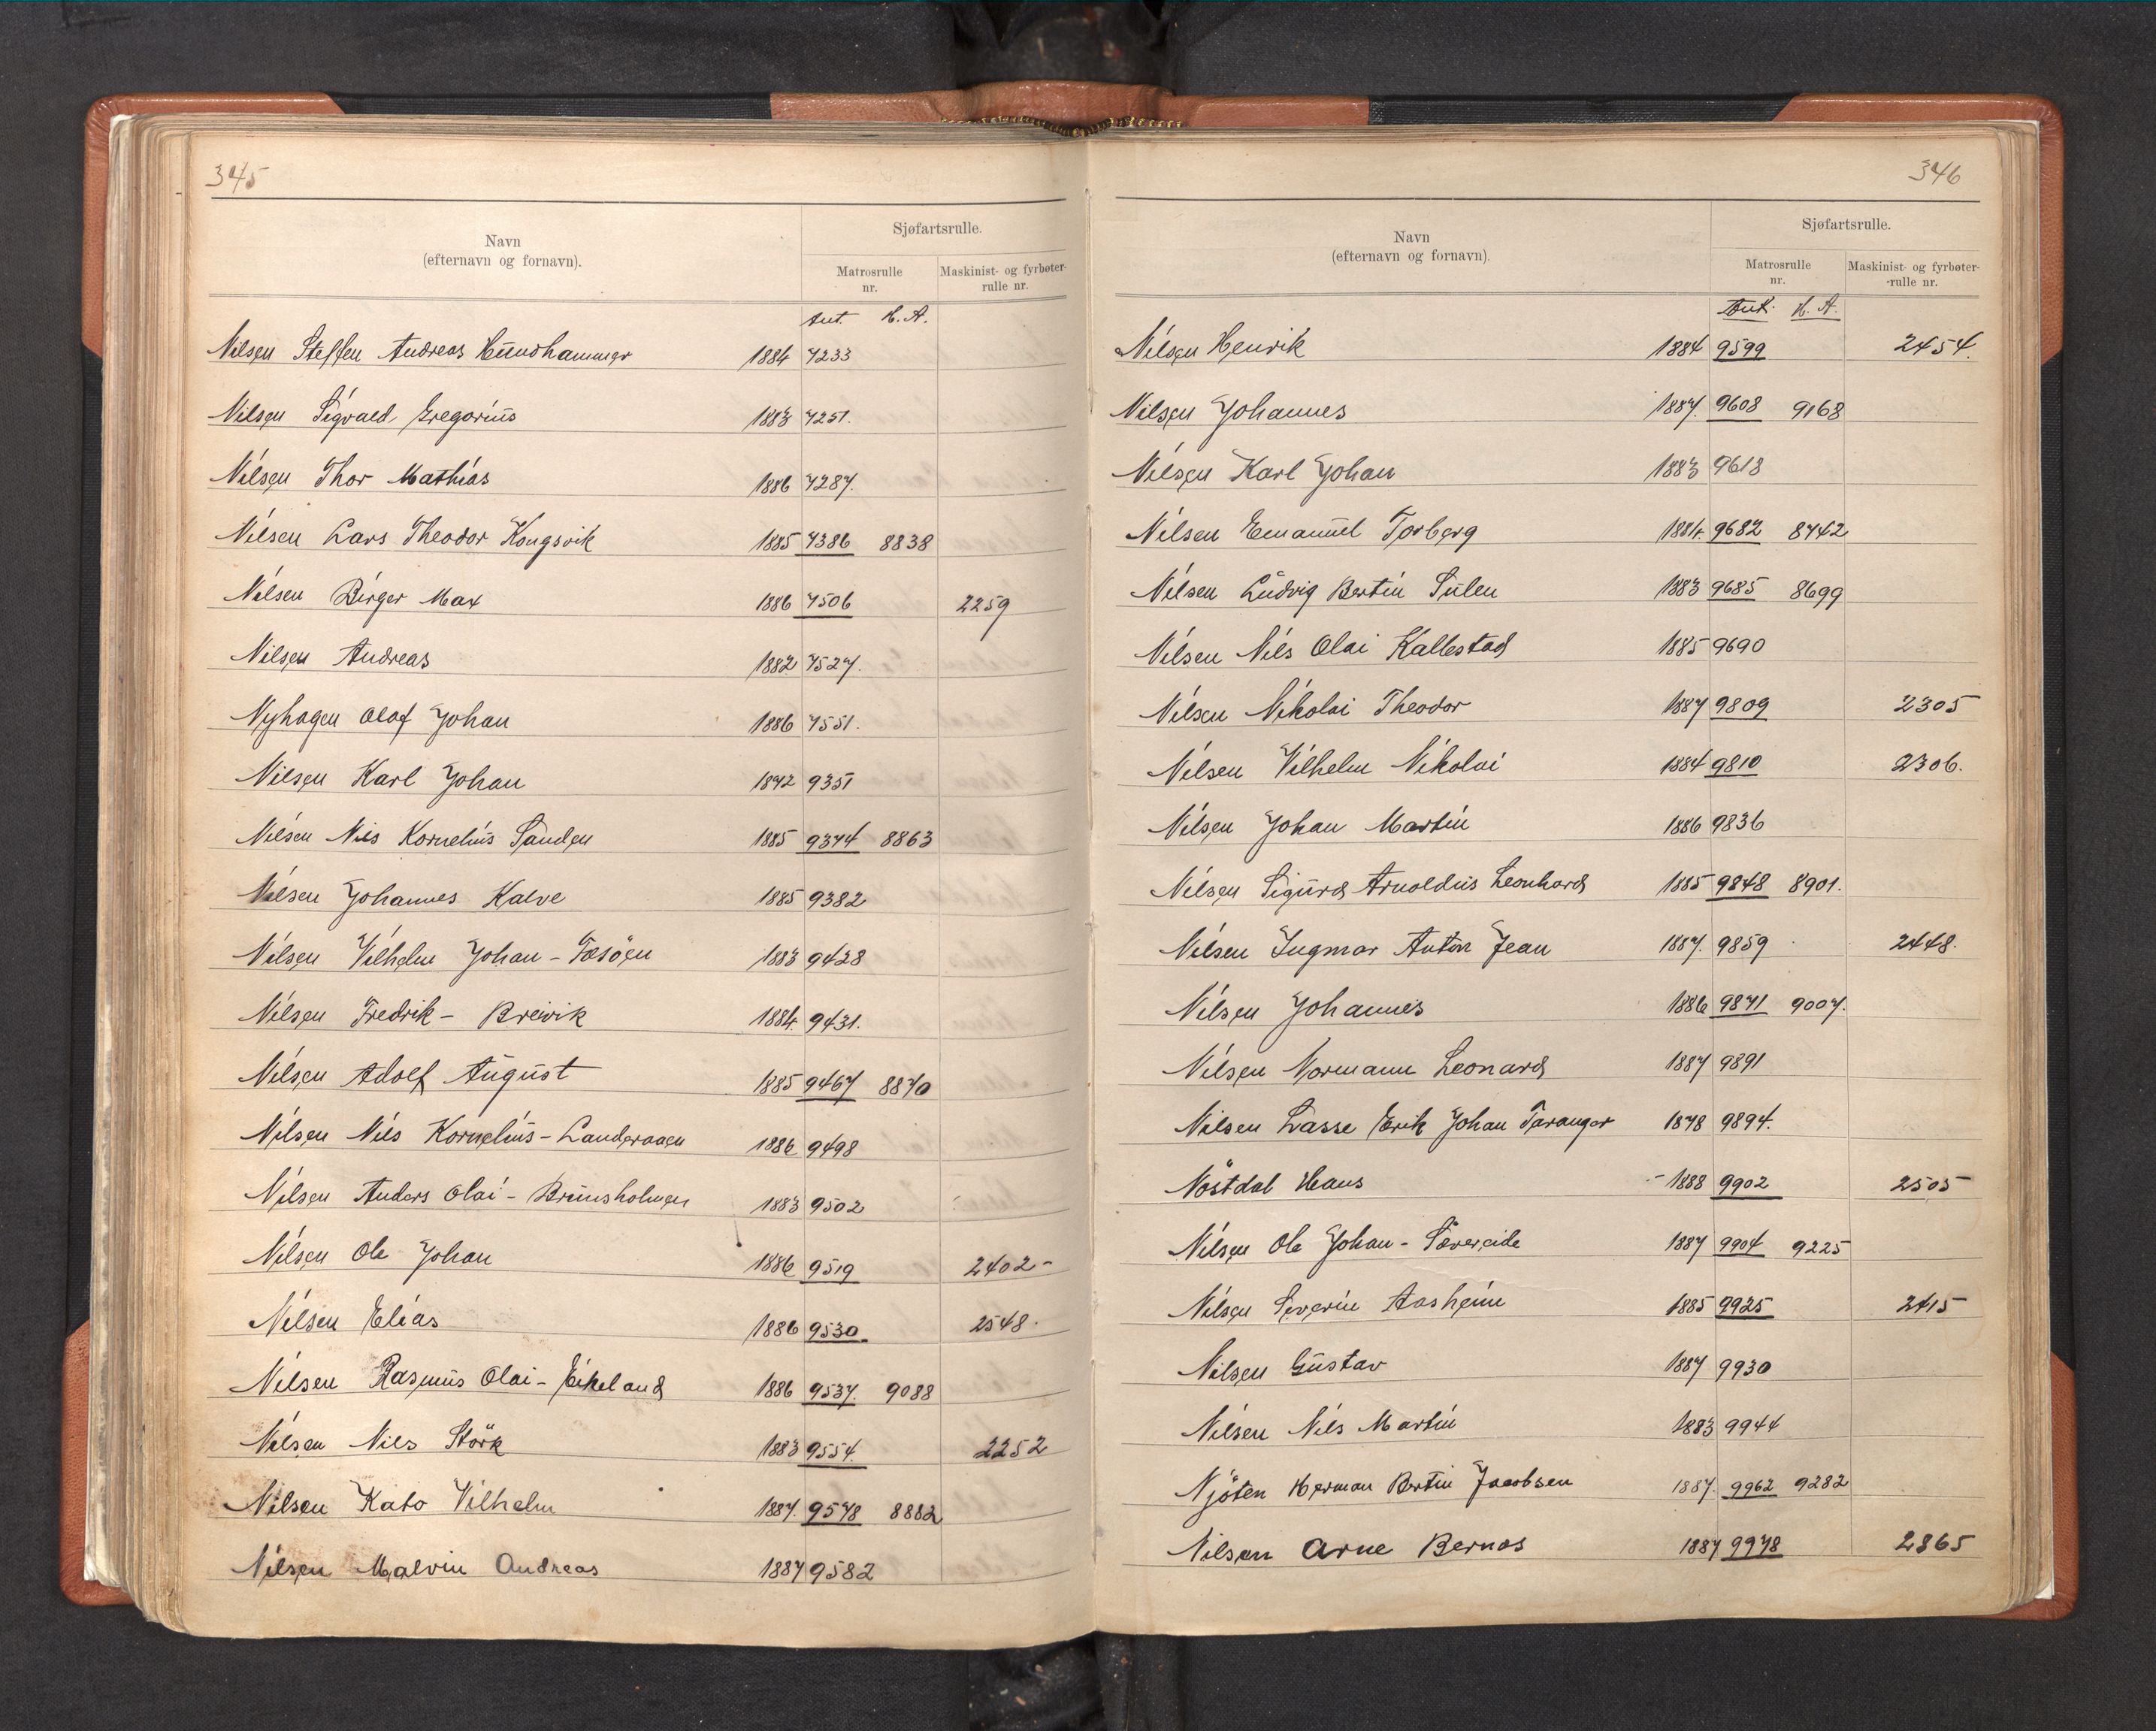 345
Navn
(efternavn og fornavn).
Sjøfartsrulle.
Matrosrulle
nr.
Maskinist- og fyrbøter-
rulle nr.
Ant. H. A.
Nilsen Steffen Andreas Hundhammer 1884 7233
Nilsen Sigvald Gregorius 1883 7251.
Nilsen Thor Mathias 1886 7287.
Nilsen Lars Theodor Kongsvik 1885 7386 8838
Nilsen Birger Max 1886 7506 2259
Nilsen Andreas 1882 7527.
Nyhagen Olaf Johan 1886 7551.
Nilsen Karl Johan 1872 9351
Nilsen Nils Kornelius Sanden 1885 9374 8863
Nilsen Johannes Kalve 1885 9382
Nilsen Vilhelm Johan - Tæsöen 1883 9428
Nilsen Fredrik - Breivik 1884. 9431.
Nilsen Adolf August 1885 9467 8870
Nilsen Nils Kornelius - Landeraaen 1886 9498
Nilsen Anders Olai - Brunsholmen 1883 9502
Nilsen Ole Johan 1886 9519 2402 -
Nilsen Elias 1886 9530 2548.
Nilsen Rasmus Olai - Eikeland 1886 9537. 9088
Nilsen Nils Störk 1883 9554. 2252
Nilsen Kato Vilhelm 1887. 9578 8882
Nilsen Malvin Andreas 1887 9582
346
Navn
(efternavn og fornavn).
Sjøfartsrulle.
Matrosrulle
nr.
Maskinist- og fyrbøter-
-rulle nr.
Ant. H. A.
Nilsen Henrik 1884 9599 2454.
Nilsen Johannes 1887. 9608 9168
Nilsen Karl Johan 1883 9618
Nilsen Emanuel Torberg 1884. 9682 8742
Nilsen Ludvig Bertin Sulen 1883 9685 8699
Nilsen Nils Olai Kallestad 1885 9690
Nilsen Nikolai Theodor 1887 9809 2305
Nilsen Vilhelm Nikolai 1884 9810 2306.
Nilsen Johan Martin 1886 9836
Nilsen Sigurd Arnoldus Leonhard 1885 9848 8901.
Nilsen Ingmar Anton Jean 1887. 9859 2448.
Nilsen Johannes 1886 9871 9007.
Nilsen Normann Leonard 1887 9891
Nilsen Lasse Erik Johan Taranger 1878 9894.
Nöstdal Hans - 1888 9902 2505
Nilsen Ole Johan - Sævereide 1887 9904 9225
Nilsen Severin Aasheim 1885 9925 2415
Nilsen Gustav 1887 9930
Nilsen Nils Martin 1883 9944
Njöten Herman Bertin Jacobsen 1887. 9962 9282
Nilsen Arne Bernas 1887 9978 2865